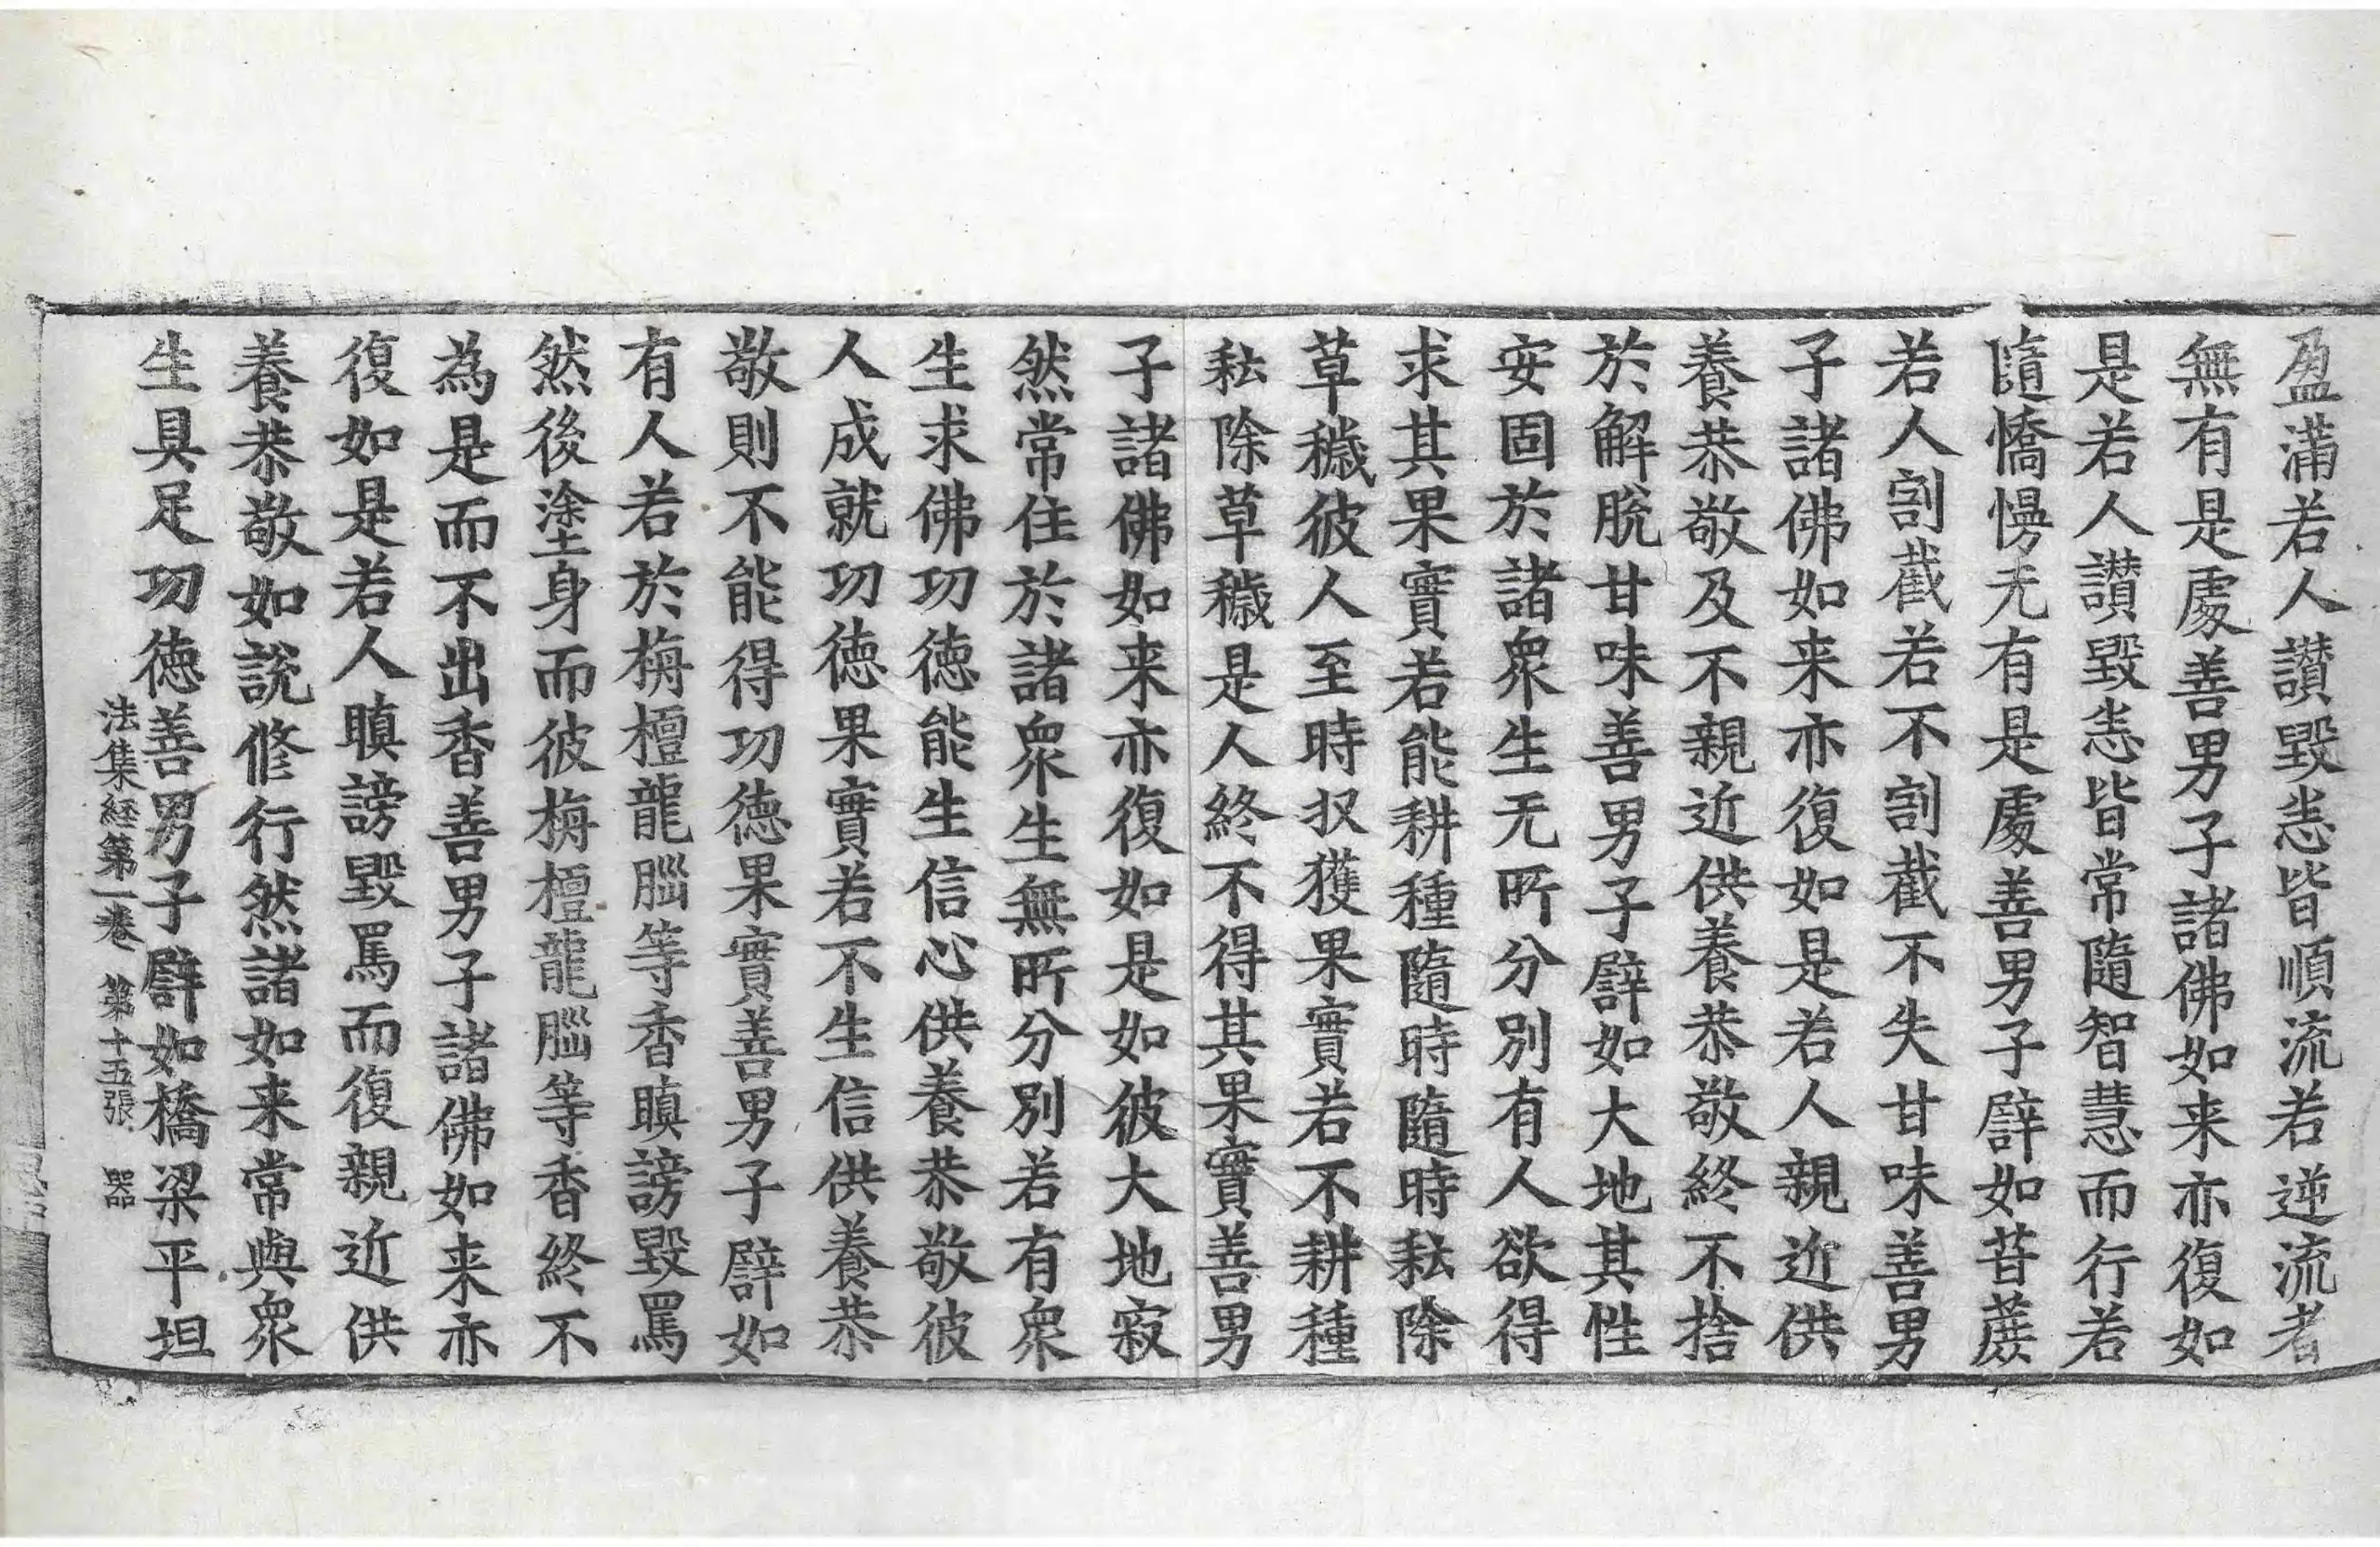 盈滿若人讃毀恙皆順流若逆流者
無有是處善男子諸佛如来亦復如
是若人讃毀恙皆常隨智慧而行若
隨憍慢无有是處善男子譬如苷蔗
若人割截若不割截不失甘味善男
子諸佛如来亦復如是若人親近供
養恭敬及不親近供養恭敬終不捨
於解脫甘味善男子譬如大地其性
安固於諸衆生无所分別有人欲得
求其果實若能耕種隨時隨時耘除
草穢彼人至時収獲果實若不耕種
耘除草穢是人終不得其果實善男
子諸佛如来亦復如是如彼大地寂
然常住於諸衆生無所分別若有衆
生求佛功德能生信心供養恭敬彼
人成就功德果實若不生信供養恭
敬則不能得功德果實善男子譬如
有人若於栴檀龍腦等香瞋謗毀罵
然後塗身而彼栴檀龍腦等香終不
為是而不出香善男子諸佛如来亦
復如是若人瞋謗毀罵而復親近供
養恭敬如說修行然諸如来常與衆
生具足功德善男子譬如橋梁平坦
法集経第一卷 第十五張 器